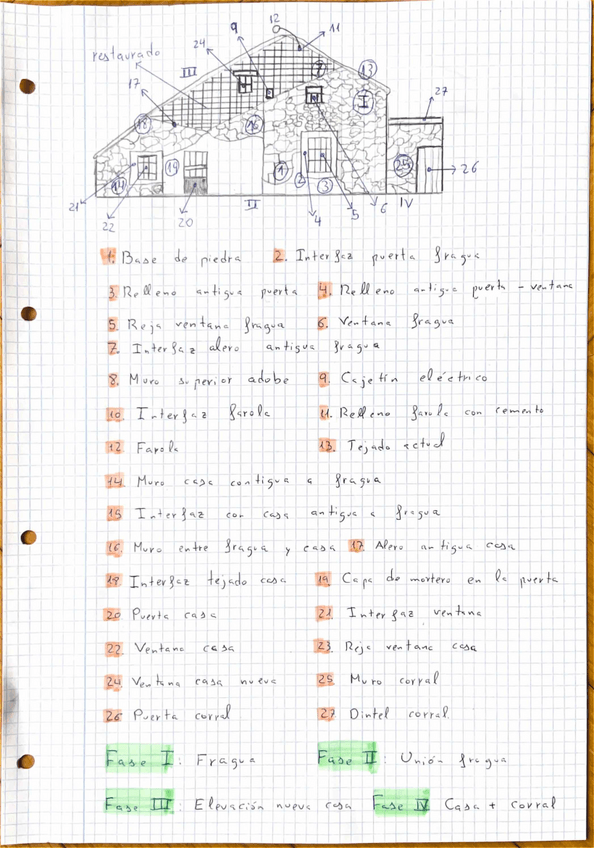 12
9
11
24
restaurado
III
7
13
17
I
27
18
16
14
19
1
25
26
2
3
21
II
IV
22
20
4
5
6
1. Base de piedra 2. Interfaz puerta fragua
3. Relleno antigua puerta 4. Relleno antigua puerta - ventana
5. Reja ventana fragua 6. Ventana fragua
7. Interfaz alero antigua fragua
8. Muro superior adobe 9. Cajetín eléctrico
10 Interfaz farola 11. Relleno farola con cemento
12 Farola 13. Tejado actual
14 Muro casa contigua a fragua
15 Interfaz con casa antigua a fragua
16. Muro entre fragua y casa 17. Alero antigua casa
18 Interfaz tejado casa 19 Capa de mortero en la puerta
20 Puerta casa 21 Interfaz ventana
22. Ventana casa 23. Reja ventana casa
24 Ventana casa nueva 25 Muro corral
26 Puerta corral 27 Dintel corral
Fase I: Fragua Fase II: Unión fragua
Fase III: Elevación nueva casa Fase IV Casa + corral